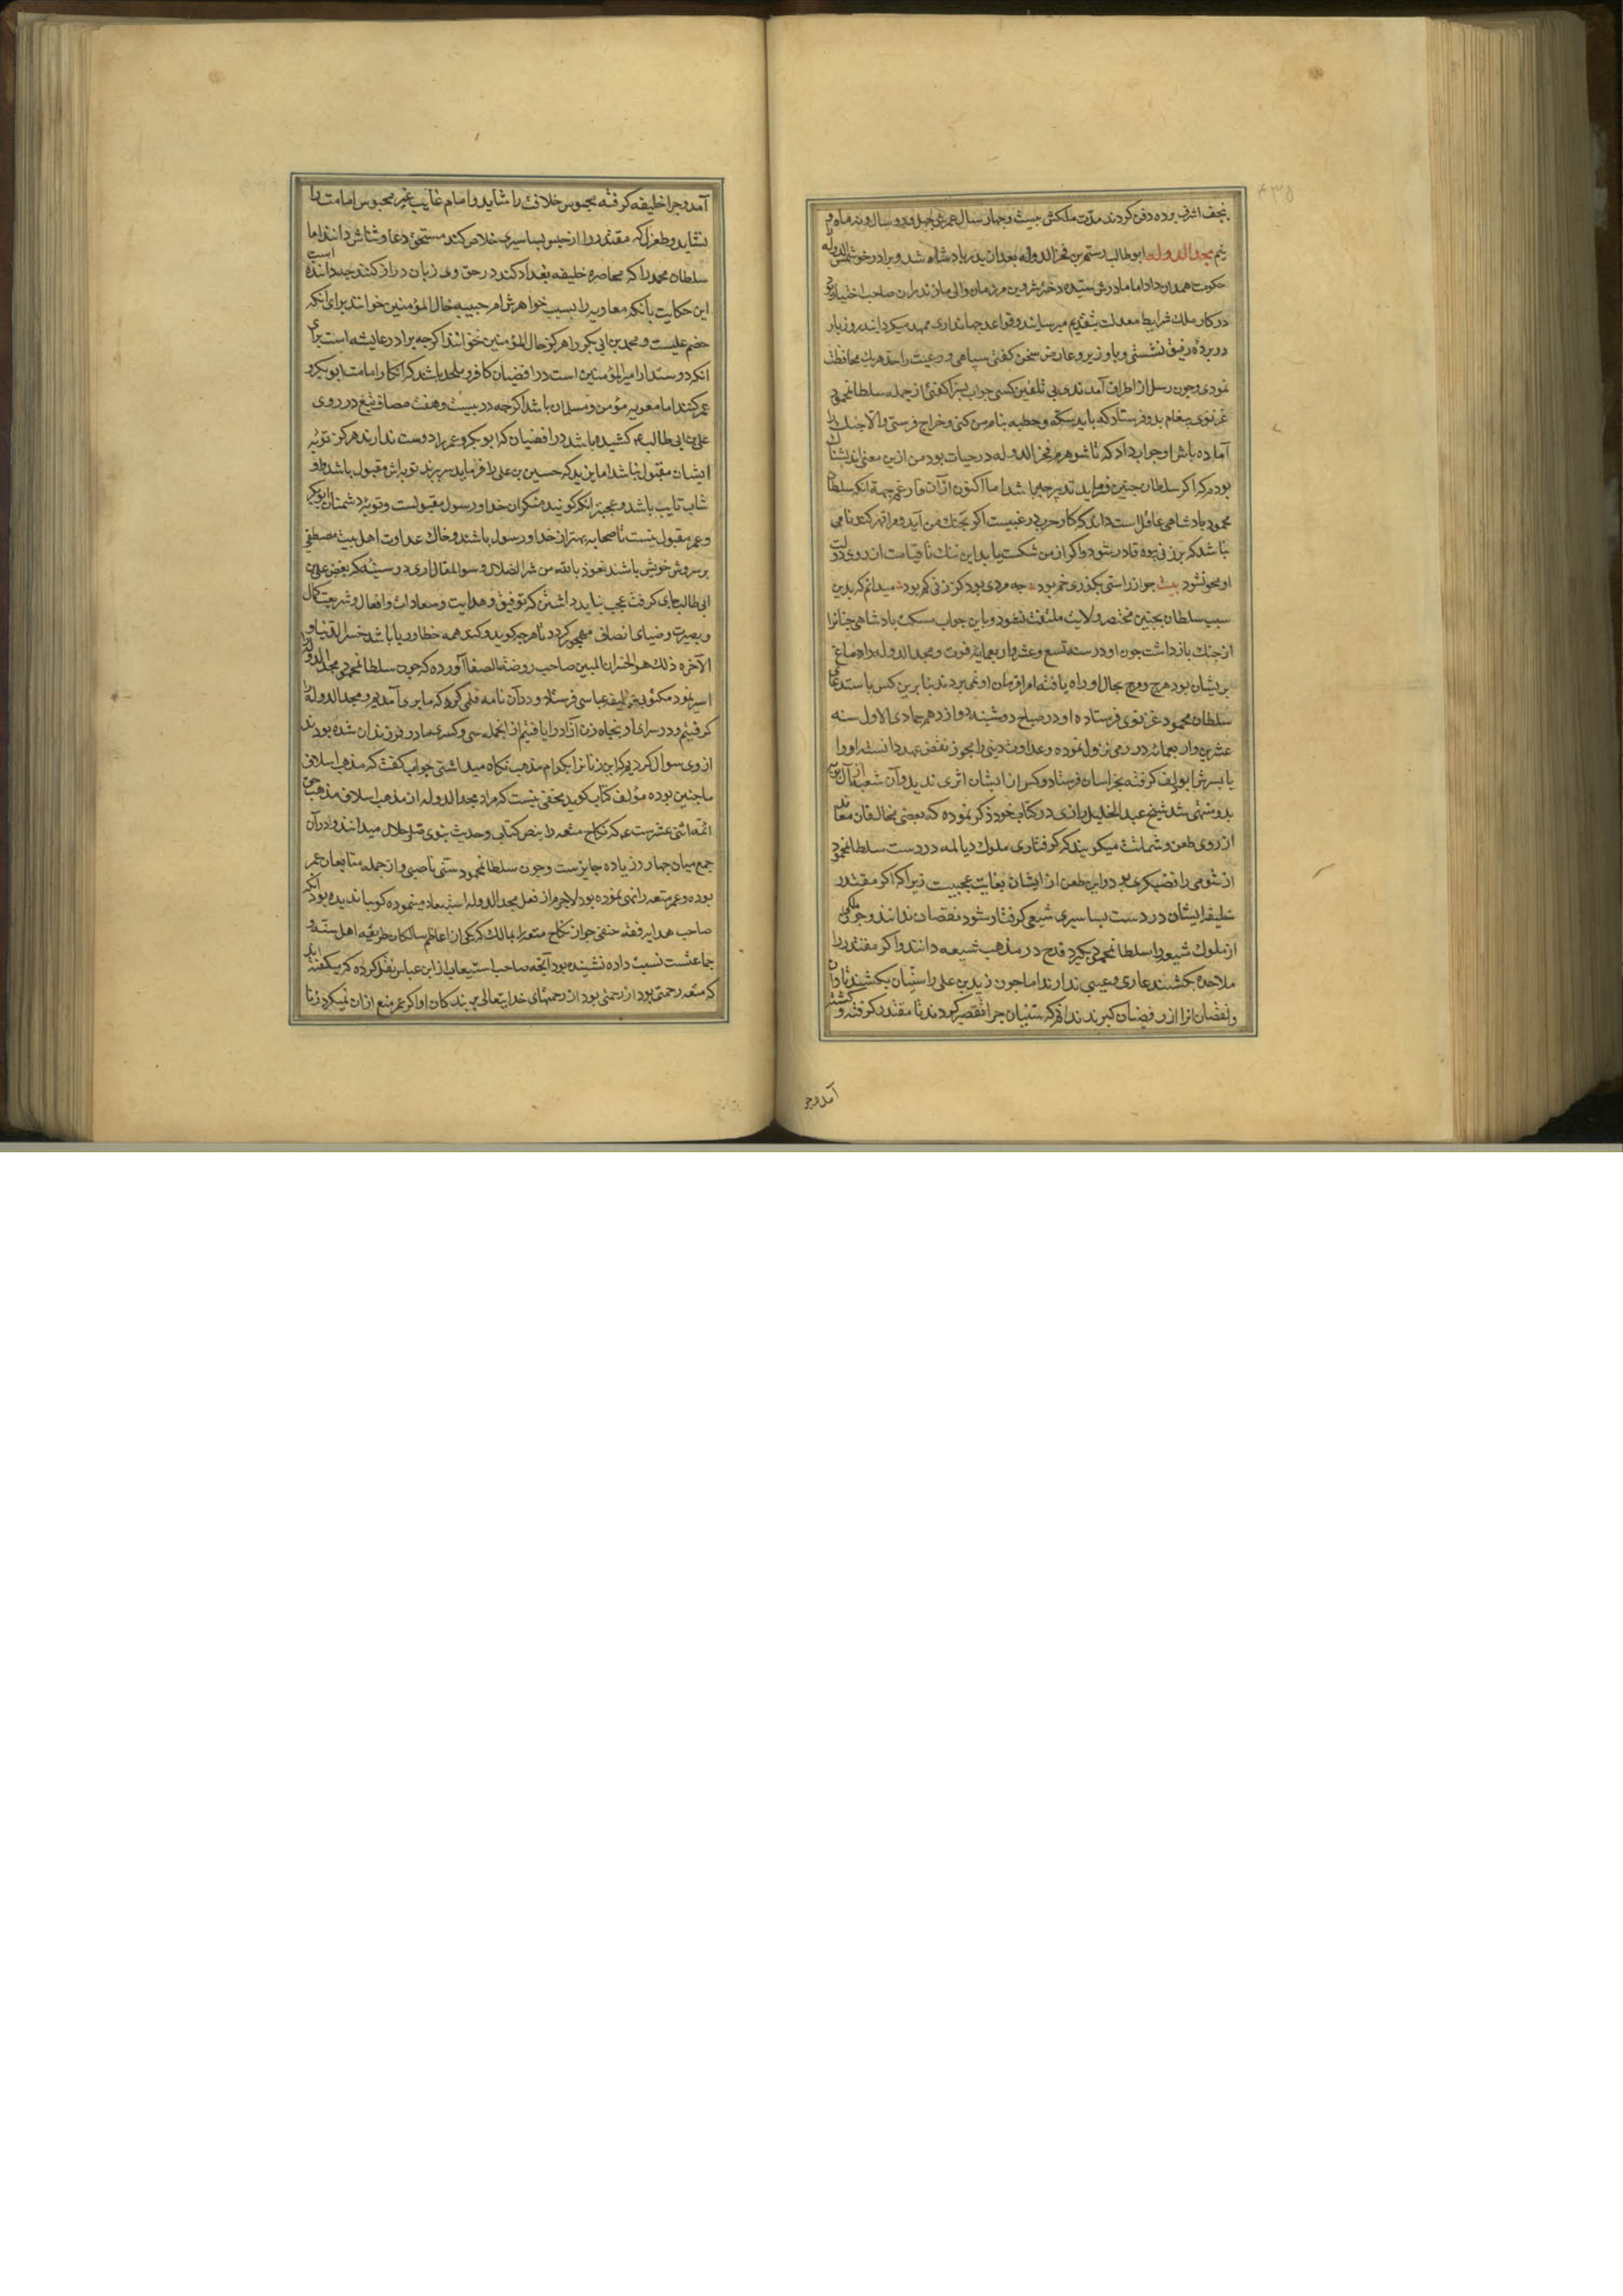 بنجف اشرف بوده دفن کردند مدّت ملکش بیست و چهار سال عمرش چهل و دو سال و نه ماه و
نیم مجد الدوله ابو طالب رستم بن فخر الدوله بعد از پدر پادشاه شد و برادر خود شمس الدوله را
حکومت همدان داد اما مادرش سیده دختر شروین مرزبان والی مازندران صاحب اختیار بود
در کار ملک شرایط معدلت بتقدیم میرسانید و قواعد جهانداری ممهد میگردانید روز بار
در پرده رقیق نشستی و با وزیر و عارض سخن گفتی سپاهی و رعیت را حد هر یک محافظت
نمودی و چون رسل از اطراف آمدندی بی تلقین کسی جواب بسزا گفتی از جمله سلطانمحمود
غزنوی پیغام بدو فرستاد که باید سکه و خطبه بنام من کنی و خراج فرستی و الا جنک را
آماده باش او جواب داد که تا شوهرم فخر الدوله در حیات بود من ازین معنی اندیشناک
بودم که اگر سلطان چنین فرماید تدبیر چه باشد اما اکنون از آن فارغم جهة آنکه سلطان
محمود پادشاهی عاقل است داند که کار حرب در غیبست اگر بجنک من آید و مرا قهر کند نامی
نباشد که بر زنی بیوه قادر شود و اگر از من شکست یابد این ننک تا قیامت از روی دولت
او محو نشود بیت چو از راستی بگذری خم بود چه مردی بود کز زنی کم بود میدانم که بدین
سبب سلطان بچنین مختصر ولایت ملتفت نشود و باین جواب مسکت پادشاهی چنانرا
از جنک بازداشت چون او در سنه تسع و عشر و اربعمایه فوت و مجد الدوله را دماغ
پریشان بود هرج و مرج بحال او راه یافته امرا فرمان او نمی بردند بنابرین کس باستدعای
سلطان محمود غزنوی فرستاده او در صباح دوشنبه دوازدهم جمادی الاول سنه
عشرین و اربعمائه در ری نزول نموده و عداوت دینی را مجوز نقض عهد دانسته او را
با پسرش ابو دلف گرفته بخراسان فرستاد و کس از ایشان اثری ندید و آن شعبه از آل بویه
بدو منتهی شد شیخ عبد الجلیل رازی در کتاب خود ذکر نموده که بعضی مخالفان معاند
از روی طعن و شماتت میگویند که گرفتاری ملوک دیالمه در دست سلطانمحمود
از شومی رافضیگری بود و این طعن از ایشان بغایت عجیبست زیرا که اگر مقتدر
خلیفه ایشان در دست بساسیری شیعی گرفتار شود نقصان ندانند و چون ملکی
از ملوک شیعه را سلطانمحمود بگیرد قدح در مذهب شیعه دانند و اگر مقتدر را
ملاحده بکشند عاری و عیبی ندارند اما چون زید بن علی را سنیان بکشند تاوان
و نقصان آنرا از رفیضان گیرند ندانم که سنیان چرا تقصیر کردند تا مقتدر گرفته و کشته
آمد و چرا
آمد و چرا خلیفه گرفته محبوس خلافت را شاید و امام غایب غیر محبوس امامت را
نشاید و طغرل که مقتدر را از حبس بساسیری خلاص کند مستحق دعا و ثناش دانند اما
سلطان محمد را که محاصره خلیفه بغداد کند در حق وی زبان دراز کنند چه ماننده است
این حکایت بآنکه معاویه را بسبب خواهرش ام حبیبه خال المؤمنین خوانند برای آنکه
خصم علیست و محمد بن ابی بکر را هرگز خال المؤمنین نخوانند اگرچه برادر عایشه است برای
آنکه دوستدار امیرالمؤمنین است و رافضیان کافر و ملحد باشند که انکار امامت ابو بکر و
عمر کنند اما معویه مؤمن و مسلمان باشد اگرچه در بیست و هفت مصاف تیغ در روی
علی بن ابی طالب ع کشیده باشد و رافضیان که ابو بکر و عمر را دوست ندارند هرگز توبه
ایشان مقبول نباشد اما یزید که حسین بن علی را فرماید سر برند توبه اش مقبول باشد و او
شاب تایب باشد و عجبتر آنکه گویند منکران خدا و رسول مقبولست و توبه دشمنان ابو بکر
و عمر مقبول نیست تا صحابه بهتر از خدا و رسول باشند و خاک عداوت اهل بیت مصطفی
بر سر و ش خویش پاشند نعوذ بالله من شر الضلال و سوء المقال آری در سینه که بغض علی بن
ابی طالب جای گرفت عجب نباید داشتن که توفیق و هدایت و سعادات و افعال و شریعت و کمال
و بصیرت و ضیای انصاف مهجور گردد تا هرچه گوید و کند همه خطا و ریا باشد خسر الدنیا و
الآخره ذلک هو الخسران المبین صاحب روضة الصفا آورده که چون سلطانمحمود مجد الدوله را
اسیر نمود مکتوبی بخلیفه عباسی فرستاد و در آن نامه قلمی کرد که ما بری آمدیم و مجد الدوله را
گرفتیم و در سرای او پنجاه زن آزاد را یافتیم از آنجمله سی و کسری مادر فرزندان شده بودند
از وی سوال کردیم که این زنانرا بکدام مذهب نکاه میداشتی جواب گفت که مذهب اسلاف
ما چنین بوده مؤلف کتاب گوید مخفی نیست که مراد مجد الدوله از مذهب اسلاف مذهب حق
ائمه اثنی عشرست ع که نکاح متعه را بنص کتاب و حدیث نبوی ص حلال میدانند و در آن
جمع میان چهار و زیاده جایزست و چون سلطانمحمود سنی ناصبی و از جمله متابعان عمر
بوده و عمر متعه را نهی نموده بود لاجرم از فعل مجد الدوله استبعاد مینموده گویا ندیده بود آنکه
صاحب هدایه فقه حنفی جواز نکاح متعه را بمالک که یکی از اعاظم سالکان طریقه اهل سنه و
جماعتست نسبت داده نشنیده بود آنچه صاحب استیعاب از ابن عباس نقل کرده که میگفته اند
که متعه رحمتی بود از رحمتهای خدایتعالی بر بندکان او اگر عمر منع از آن نمیکرد زنا